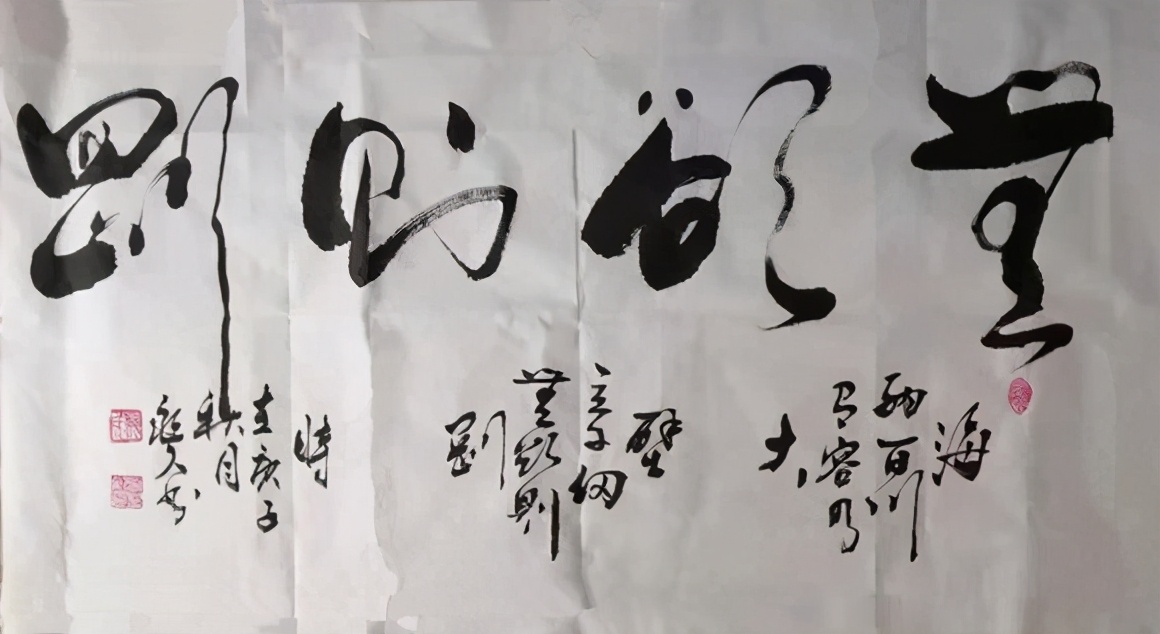 無欲則剛
海
納百川
有容乃
大
壁
立千仞
無欲則
剛
時
在庚子
秋月
书